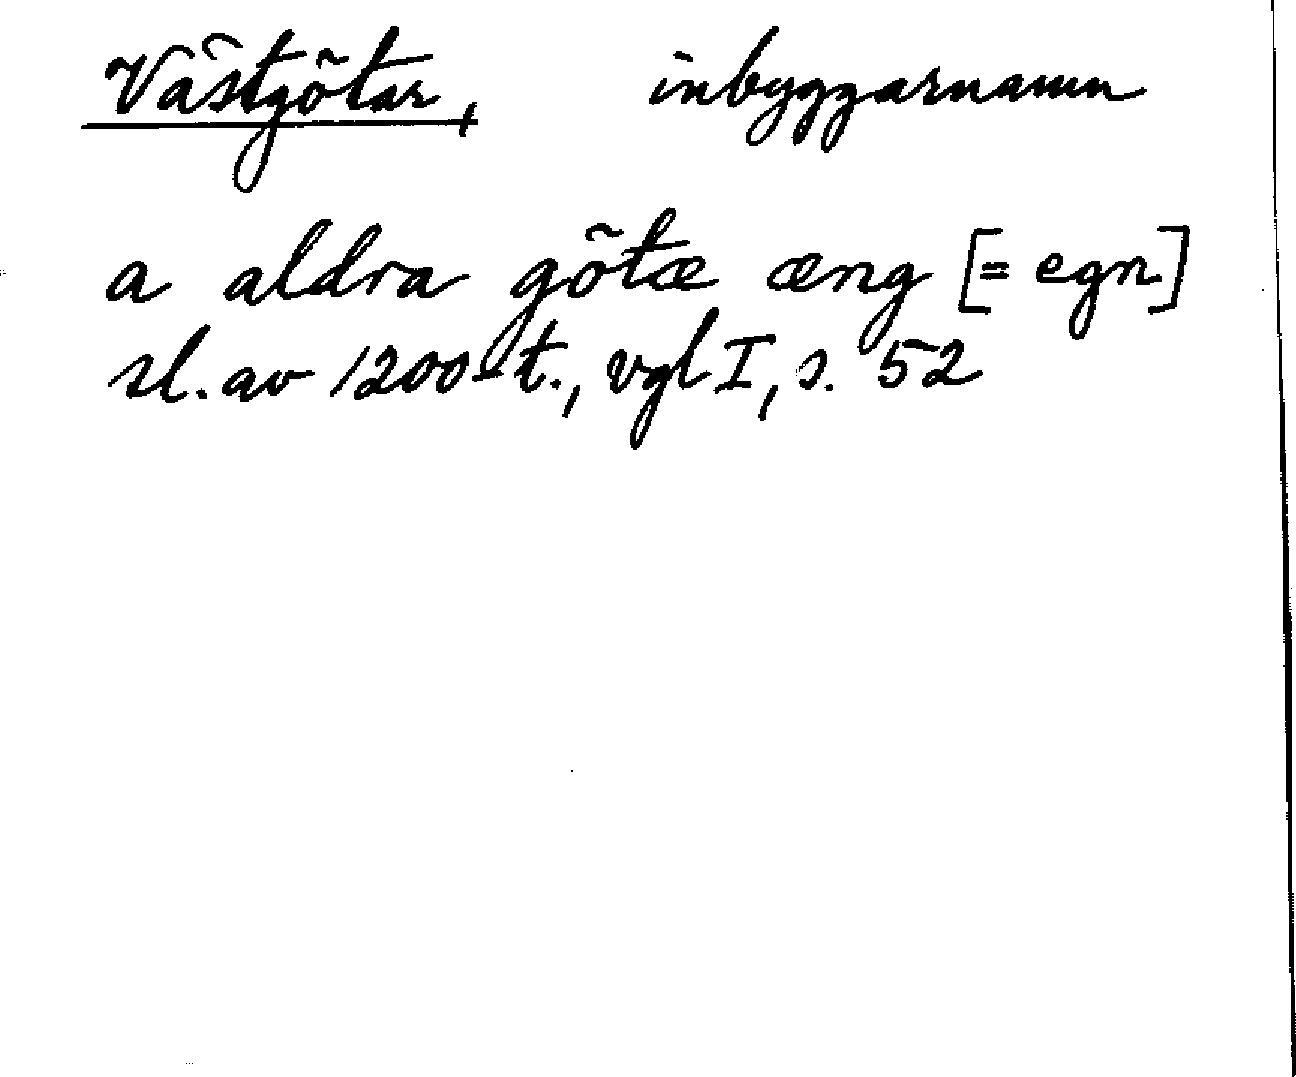 Västgötar, inbyggarnamn
a aldra götæ æng [= egn]
sl. av 1200-t., vgl I, s. 52